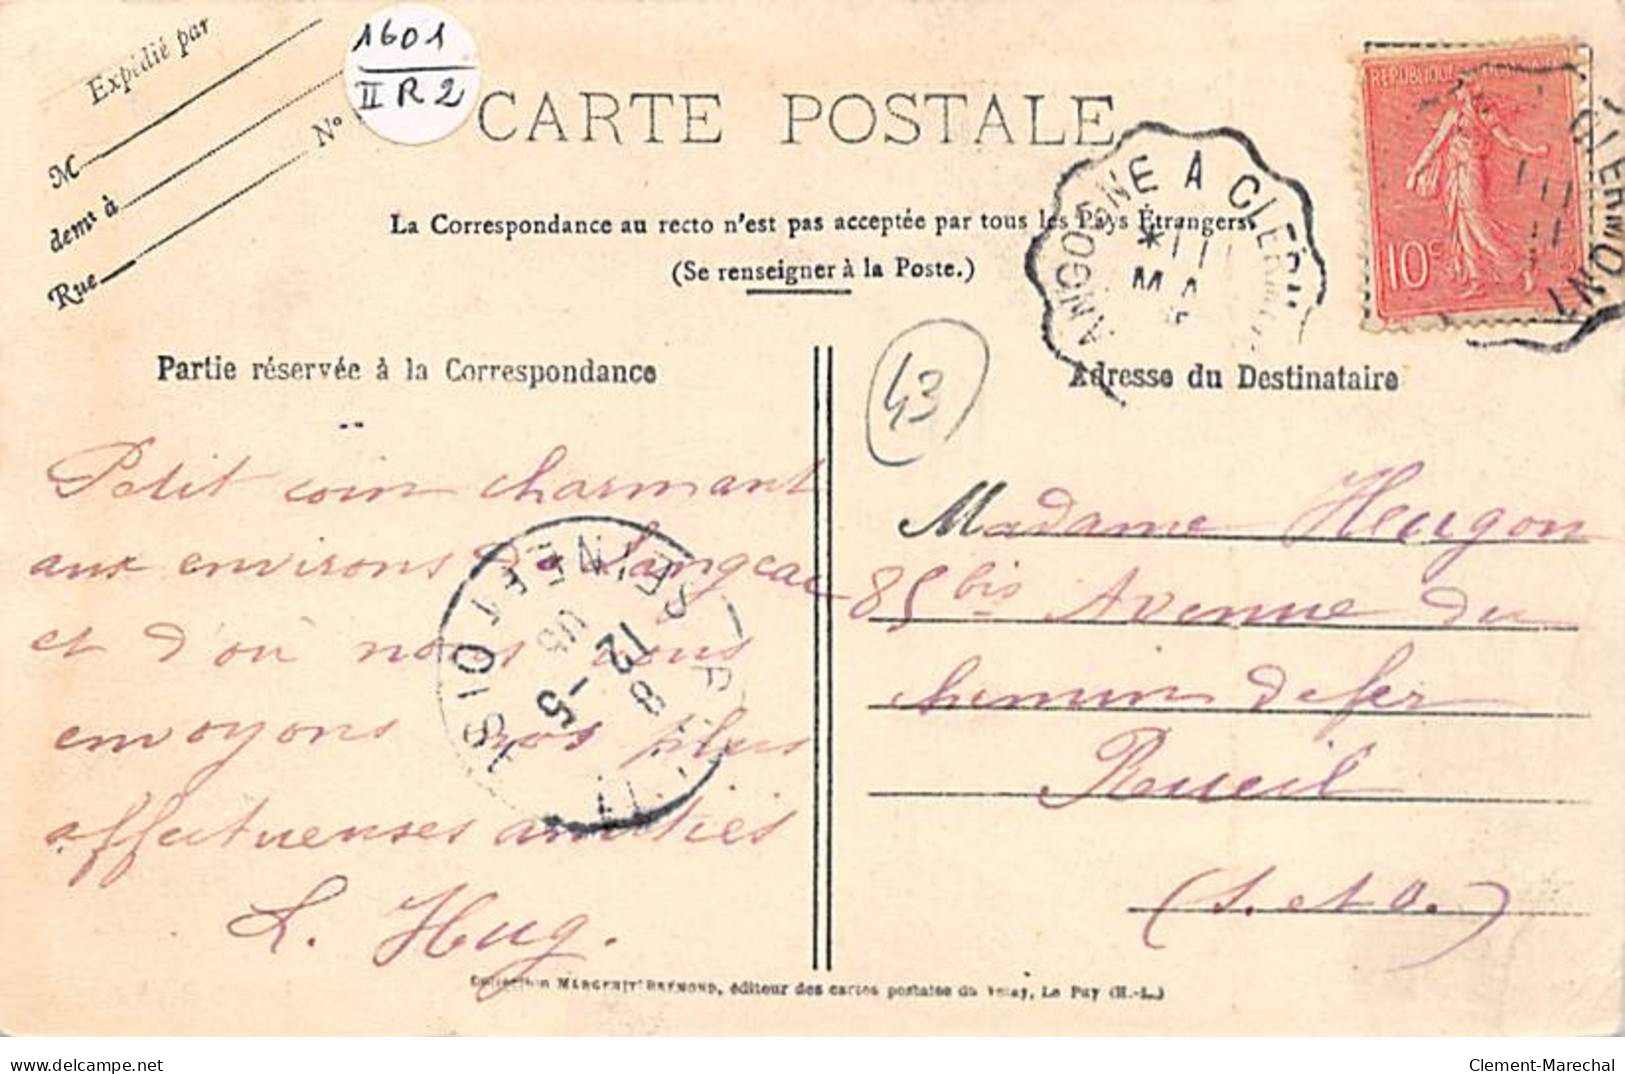 Expédié par
M
demt à
Rue
No
1601
II R 2
CARTE POSTALE
La Correspondance au recto n'est pas acceptée par tous les Pays Étrangers.
(Se renseigner à la Poste.)
REPUBLIQUE
10c
LANGOGNE A CLERMONT
CLERMONT
43
Partie réservée à la Correspondance
Petit coin charmant
aux environs de Langeac
et d'où nous vous
envoyons nos plus
affectueuses amitiés
L. Hug.
SEINE ET OISE
8
12 -5
05
Adresse du Destinataire
Madame Heugon
85 bis Avenue du
chemin de fer
Rueil
(S. et O.)
Collection MARGERIT-BRÉMOND, éditeur des cartes postales du Velay, Le Puy (H.-L.)
delcampe.net
Clement-Marechal